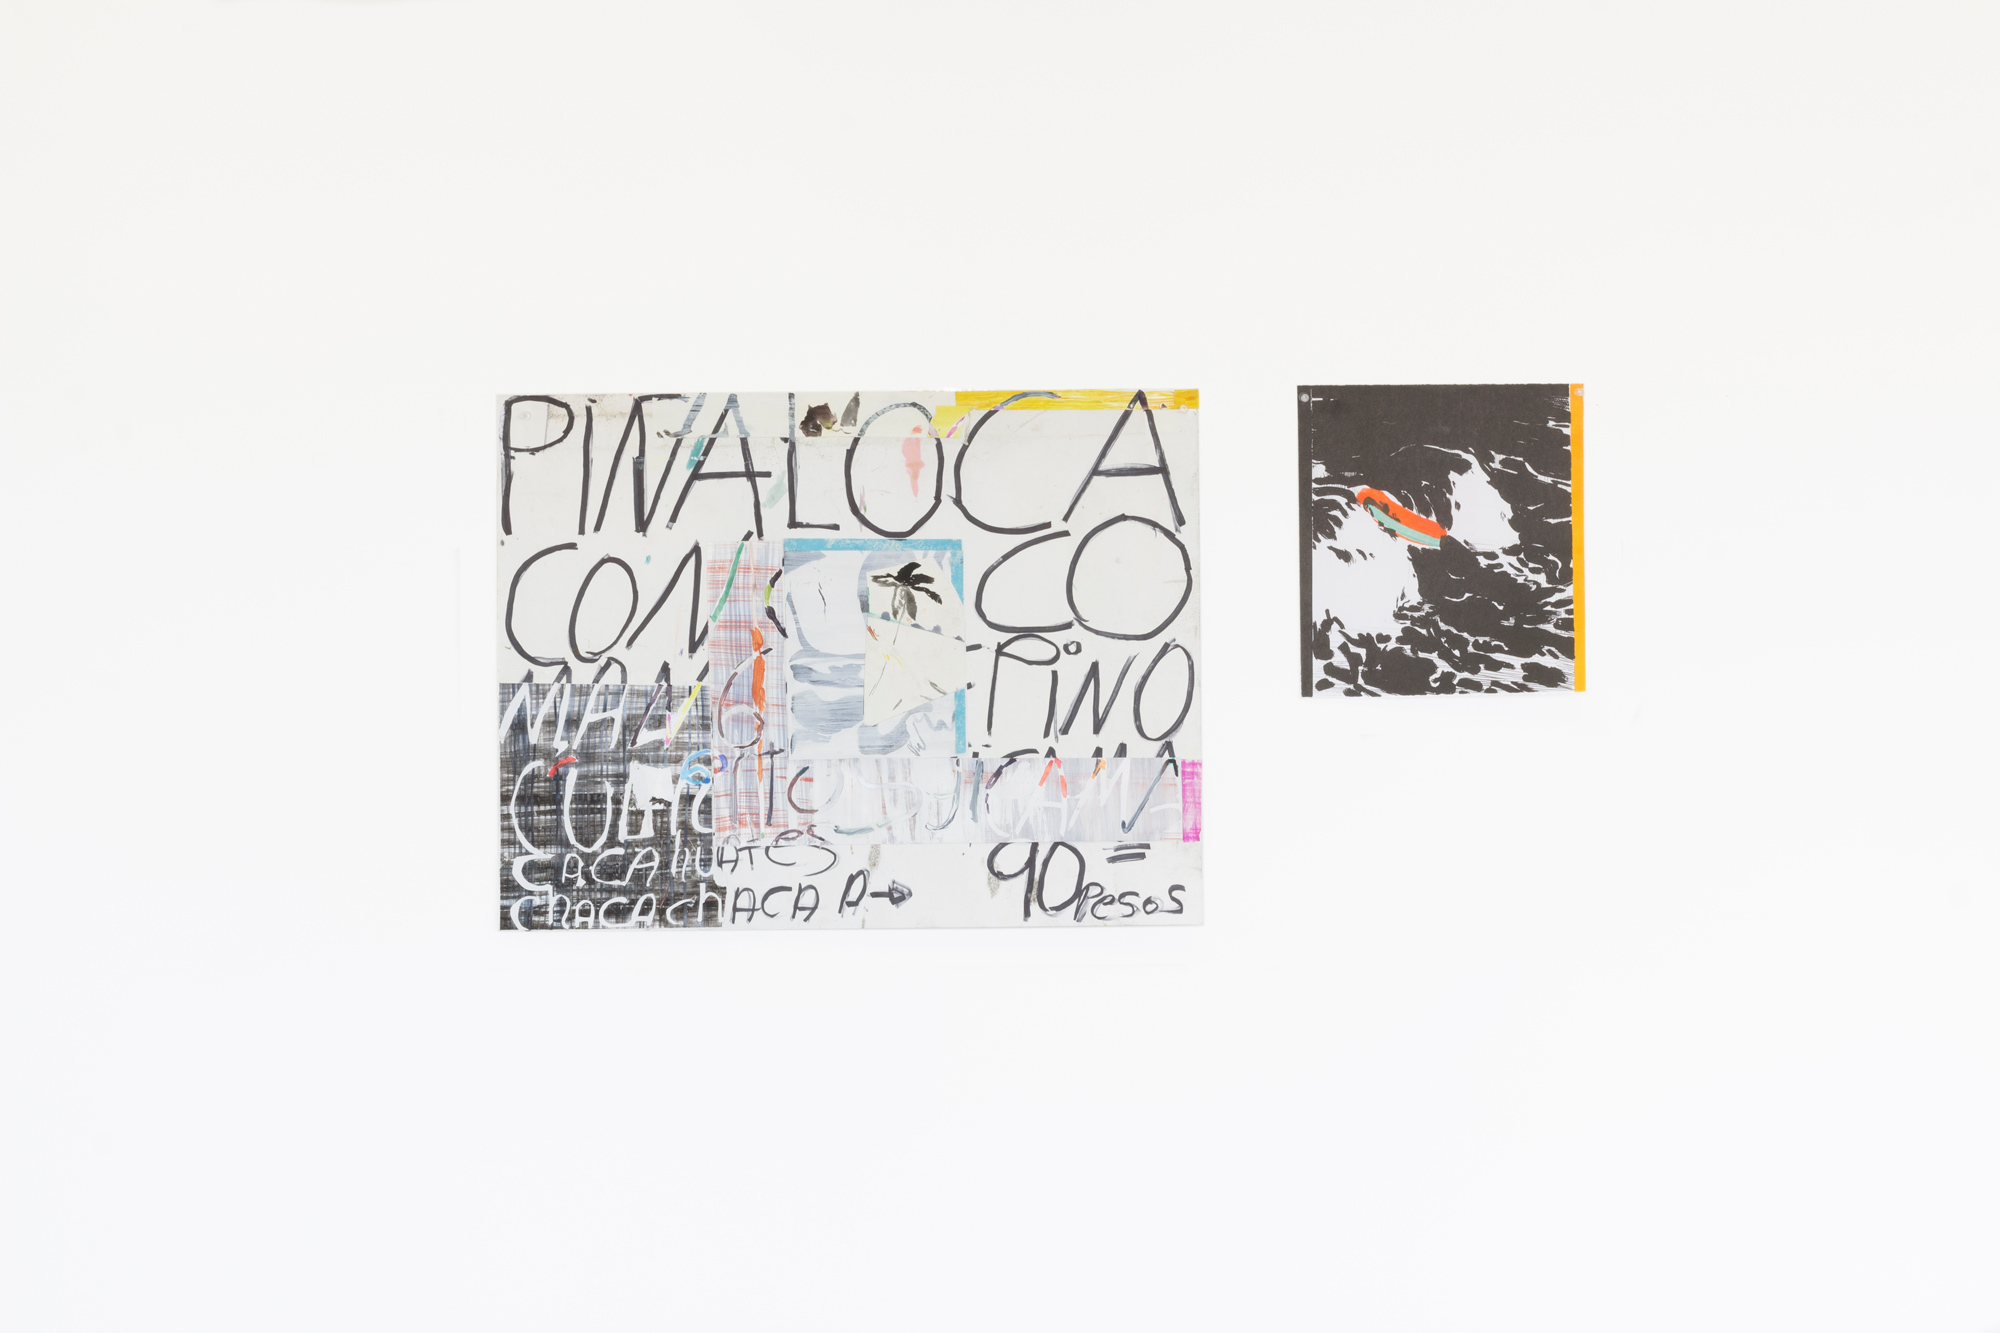 PIÑA LOCA
CON CO
MANG PiNO
CUERITOS JICAMA
CACAHUATES
chACAchACA A→ 90= Pesos